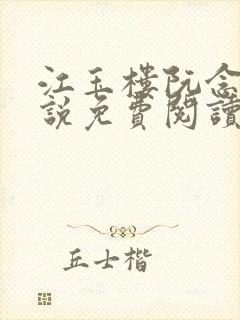 江玉樓阮念
說免費閱讀
丘士楷